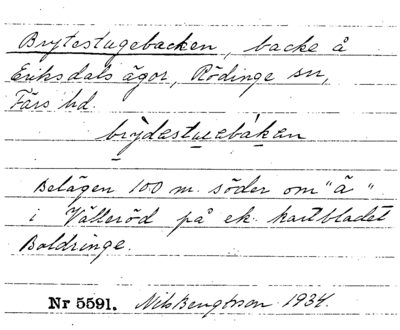 Brytestugebacken, backe å
Eriksdals ägor, Rödinge sn,
Färs hd
brỳdestuebákan
Belägen 100 m. söder om "ä"
i Jälleröd på ek. kartbladet
Baldringe.
Nr 5591. Nils Bengtsson 1934.